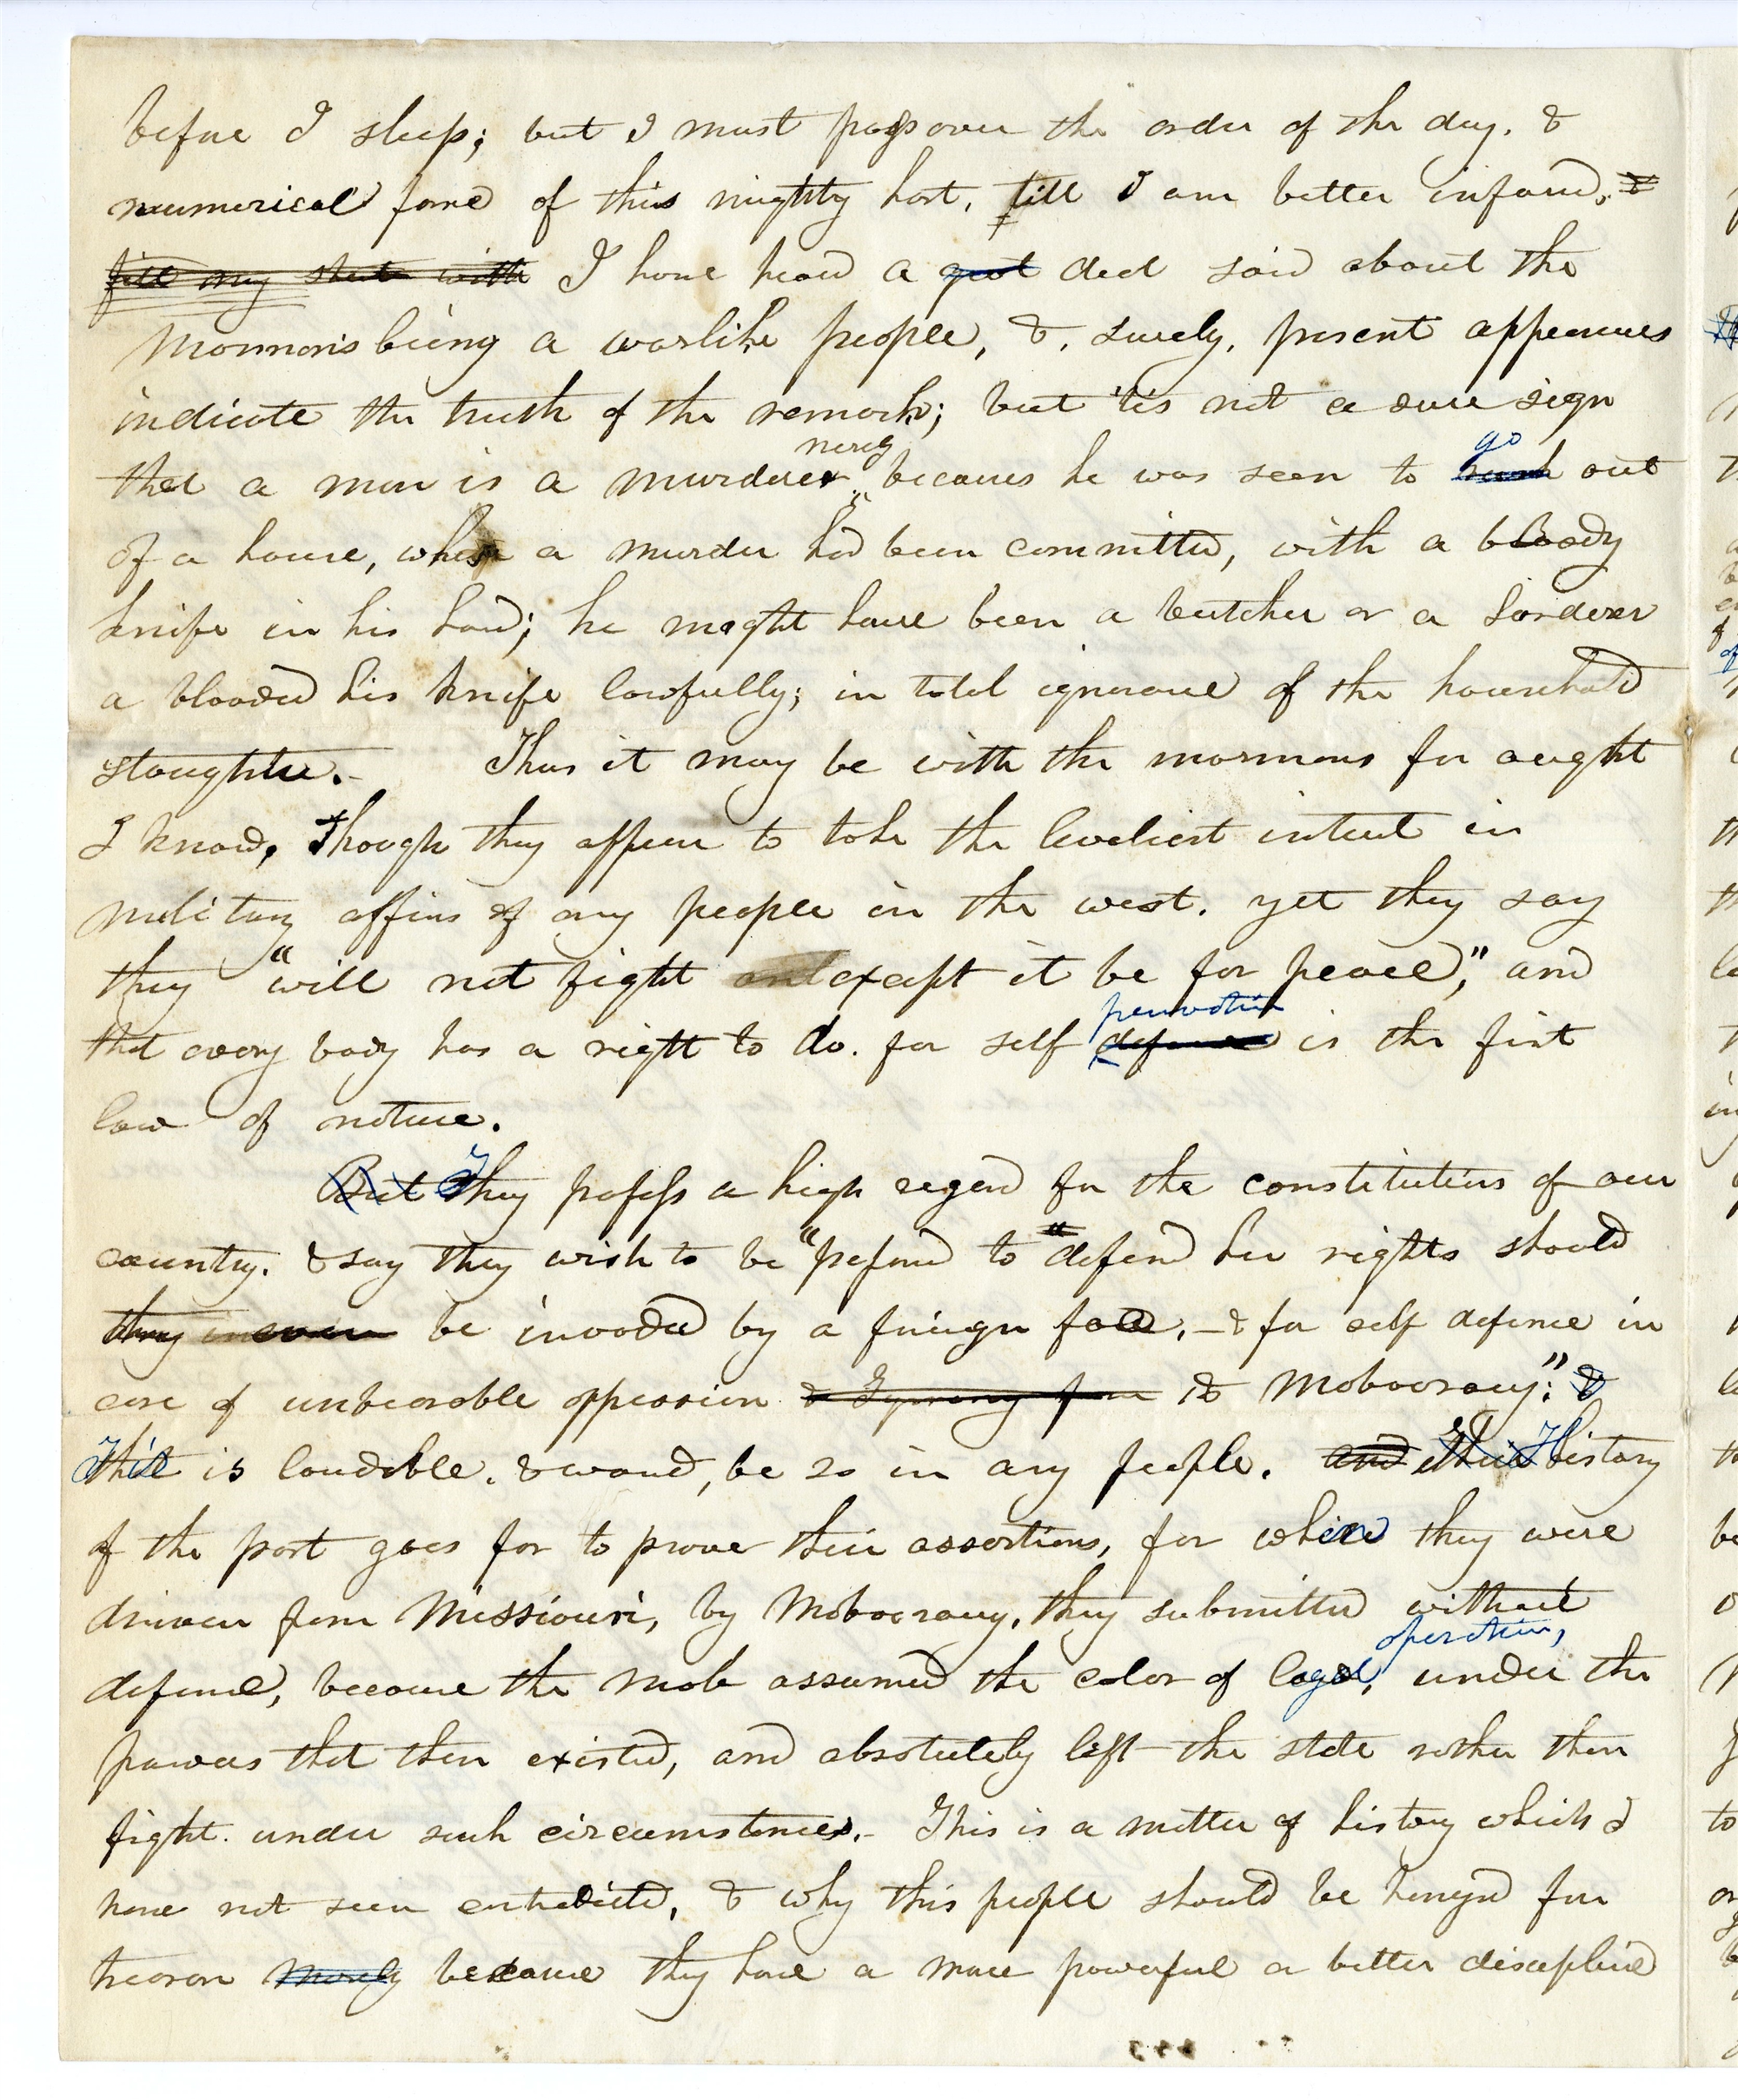 before I sleep; but I must pass over the order of the day. &
numerical force of this mighty host, till I am better informed. &
fill my sheet with I have heard a great deal said about the
Mormons being a warlike people, &, surely, present appearances
indicate the truth of the remark; but 'tis not a sure sign
merely go
that a man is a murderer becaues he was seen to out
of a house, where a murder had been committed, with a bloody
knife in his hand; he might have been a butcher or a
a blooded his knife lawfully; in total ignorance of the household
slaughter.- Thus it may be with the mormons for aught
I know, Though they appear to take the liveliest interest in
military affairs of any people in the west. yet they say
they "will not fight except it be for peace," and
preservation
that every body has a right to do. for self defence is the first
law of nature.
But They profess a high regard for the constitutions of our
country. & say they wish to be "prepared to defend her rights should
they ever be invaded by a foreign foe. - & for self defence in
case of unbearable oppression & to Mobocracy": &
This is laudable. & would, be so in any people. and History
of the past goes far to prove their assertions, for when they were
driven from Missiouri, by Mobocracy, they submitted without
operation,
defence, because the mob assumed the color of legal, under the
powers that then existed, and absolutely left the state rather than
fight. under such circumstances.- This is a matter of history which I
have not seen contradicted, & why this people should be hanged for
treason merely because they have a more powerful a better disciplined